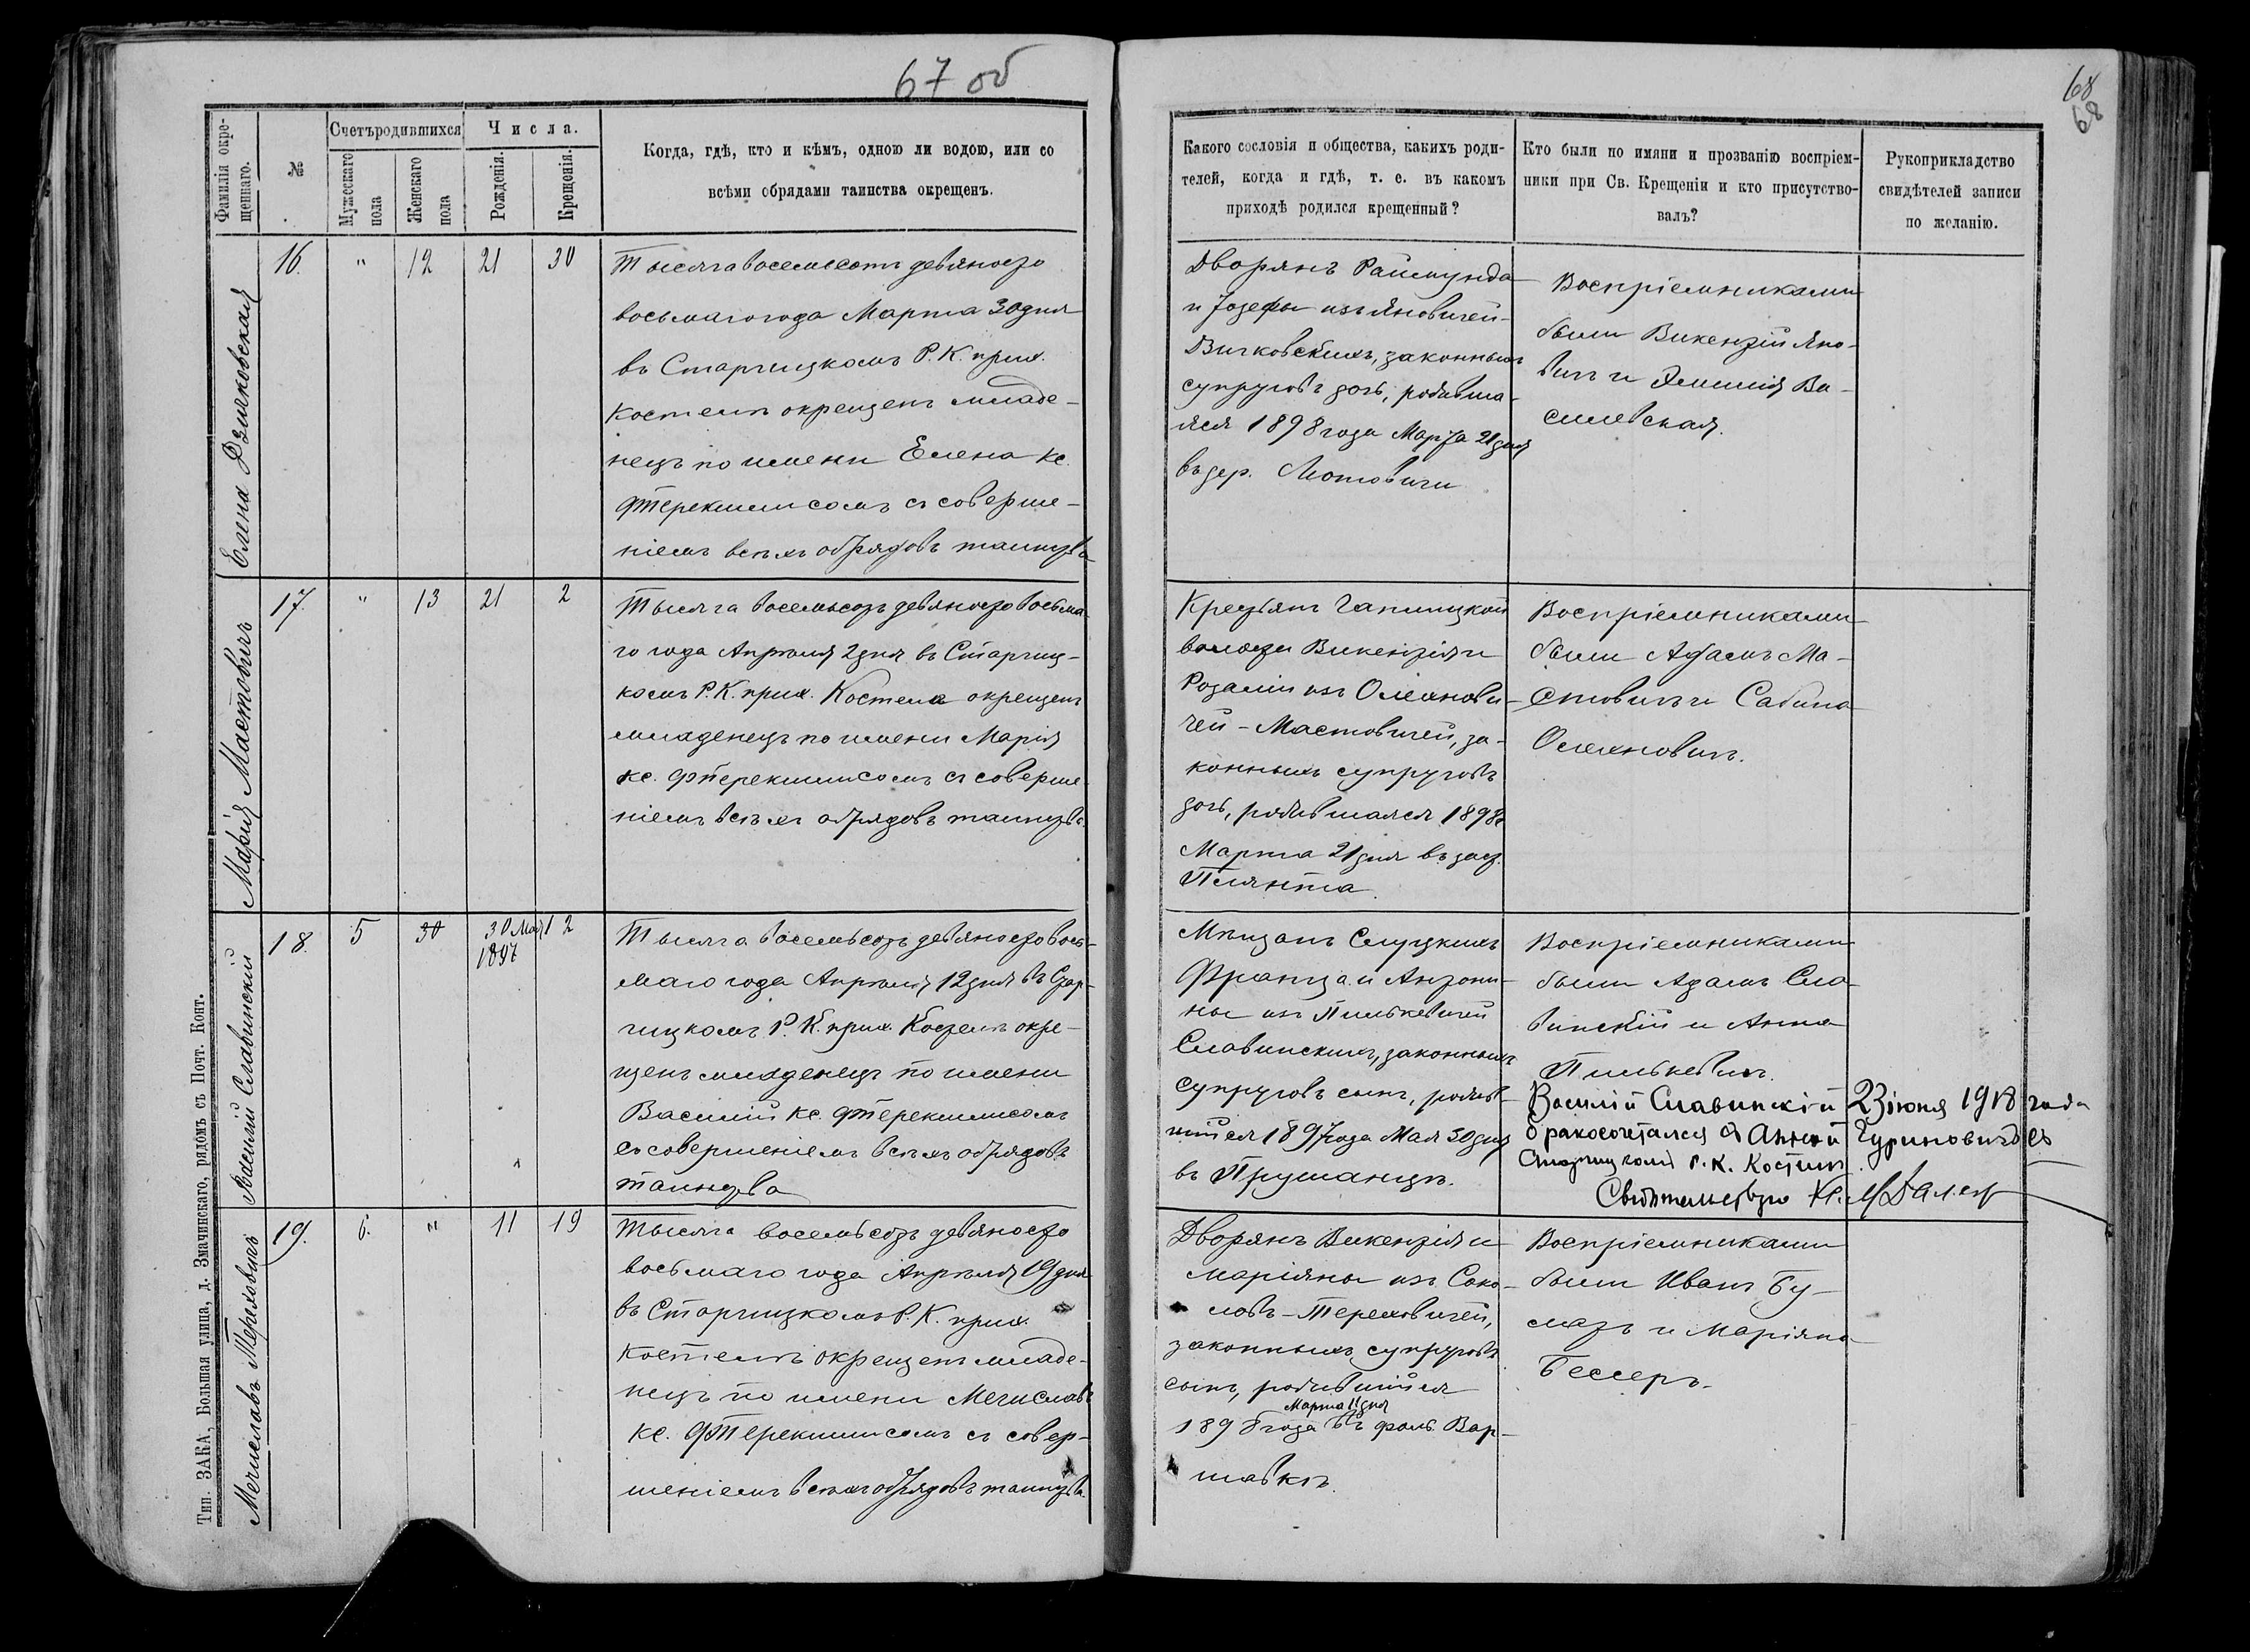 67 об
Фамилія окре-
щеннаго.
№
Счетъ родившихся
Мужескаго
пола
Женскаго
пола
Числа.
Рожденія.
Крещенія.
Когда, гдѣ, кто и кѣмъ, одною ли водою, или со
всѣми обрядами таинства окрещенъ.
Елена
16.
"
12
21
30
Тысяча восемьсотъ девяносто
восьмаго года Марта 30 дня
въ Старчицкомъ Р. К. прих.
Костелѣ окрещенъ младе-
нецъ по имени Елена кс.
съ соверше-
ніемъ всѣхъ обрядовъ таинства
Марія Мастовичъ
17.
"
13
21
2
Тысяча восемьсотъ девяносто восьма-
го года Апрѣля 2 дня въ Старчиц-
комъ Р. К. прих. Костелѣ окрещенъ
младенецъ по имени Марія
кс. съ соверше-
ніемъ всѣхъ обрядовъ таинства.
Василій Славинскій
18.
5
30
30 Мая 12
1897
Тысяча восемьсотъ девяносто вось-
маго года Апрѣля 12 дня въ Стар-
чицкомъ Р. К. прих. Костелѣ окре-
щенъ младенецъ по имени
Василій кс.
съ совершеніемъ всѣхъ обрядовъ
таинства
Мечиславъ Тереховичъ
19.
6.
"
11
19
Тысяча восемьсотъ девяносто
восьмаго года Апрѣля 19 дня
въ Старчицкомъ Р. К. прих.
костелѣ окрещенъ младе-
нецъ по имени Мечиславъ
кс. съ совер-
шеніемъ всѣхъ обрядовъ таинства.
Тип. ЗАКА, Большая улица, д. Змачинскаго, рядомъ съ Почт. Конт.
68
68
Какого сословія и общества, какихъ роди-
телей, когда и гдѣ, т. е. въ какомъ
приходѣ родился крещенный?
Кто были по имяни и прозванію воспріем-
ники при Св. Крещеніи и кто присутство-
валъ?
Рукоприкладство
свидѣтелей записи
по желанію.
Дворянъ Раймунда
и Іозефы изъ Яновичей-
законныхъ
супруговъ дочь, родивша-
яся 1898 года Марта 21 дня
въ дер. Лютовичи
Воспріемниками
были Викентій Яно-
вичъ и Эмилія Ва-
силевская.
Крестьянъ Чаплицкой
волости Викентія и
Розаліи изъ Олехнови-
чей-Мастовичей, за-
конныхъ супруговъ
дочь, родившаяся 1898 г.
Марта 21 дня въ заст.
Плянта.
Воспріемниками
были Адамъ Ма-
стовичъ и Сабина
Олехновичъ.
Мѣщанъ Слуцкихъ
Франца и Антони-
ны изъ Пилькевичей
Славинскихъ, законныхъ
супруговъ сынъ, родив-
шійся 1897 года Мая 30 дня
въ
Воспріемниками
были Адамъ Сла-
винскій и Анна
Пилькевичъ.
Василій Славинскій 23 іюня 1918 года
бракосочетался съ Анной въ
Старчицкомъ Р. К. Костелѣ.
Свидѣтельствую Кс.
Дворянъ Викентія и
Маріяны изъ Соко-
ловъ-Тереховичей,
законныхъ супруговъ
сынъ, родившійся
Марта 11 дня
1898 года въ фольв. Вар-
шавкѣ.
Воспріемниками
были Иванъ
и Маріяна
Бессеръ.